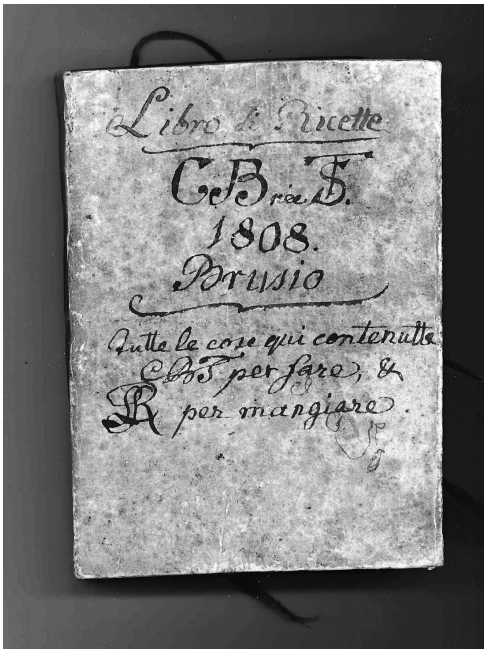 Libro di Ricette
CB née T.
1808.
Brusio
Tutte le cose qui contenutte
CBT per fare, &
per mangiare